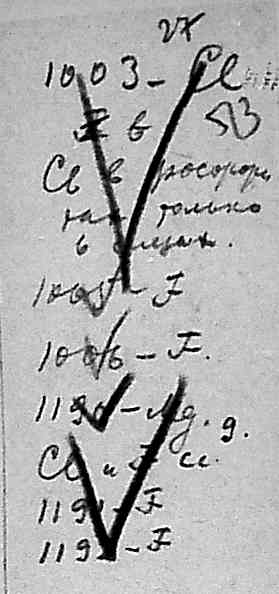 27
1003 - Cl
53
F в
Cl в фосфорн
так только
в
1005 - F
1006 - F.
1190 - Mg. g.
Cl и F см.
1191 - F
1192 - F